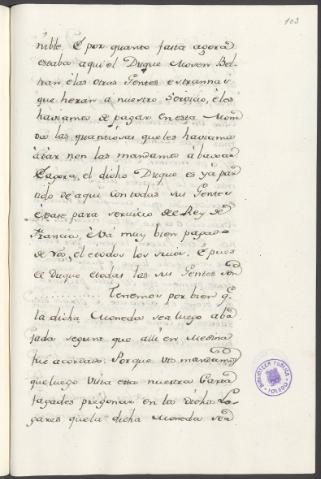 103
nible. E por quanto fasta agora
estaba aqui el Duque Mosen Bel-
tran é las otras Gentes estrannas
que heran a nuestro servicio, é les
haviamos de pagar en esta Mone
da las quantias que les haviamos
á dar non las mandamos abaxar
E agora, el dicho Duque es yá par
tido de aqui con todas sus Gentes
é pase para servicio del Rey de
Francia, é vá muy bien pagado
de vós, el é todos los suios. E pues
el Duque é todas las sus Gentes son
............ Tenemos por bien q.e
la dicha Moneda sea luego aba
jada segunt que alli en Medina
fué acordado. Porque vos mandamos
que luego vista esta nuestra Carta
fagades pregonar en los dichos Lo-
gares que la dicha Moneda sea
BIBLIOTECA PUBLICA
TOLEDO